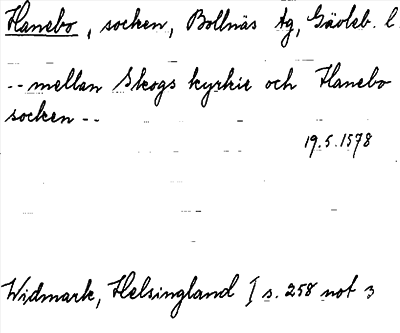 Hanebo, socken, Bollnäs tg, Gävleb. l.
-- mellan Skogs kyrkie och Hanebo
socken --
19.5.1578
Widmark, Helsingland I s. 258 not 3